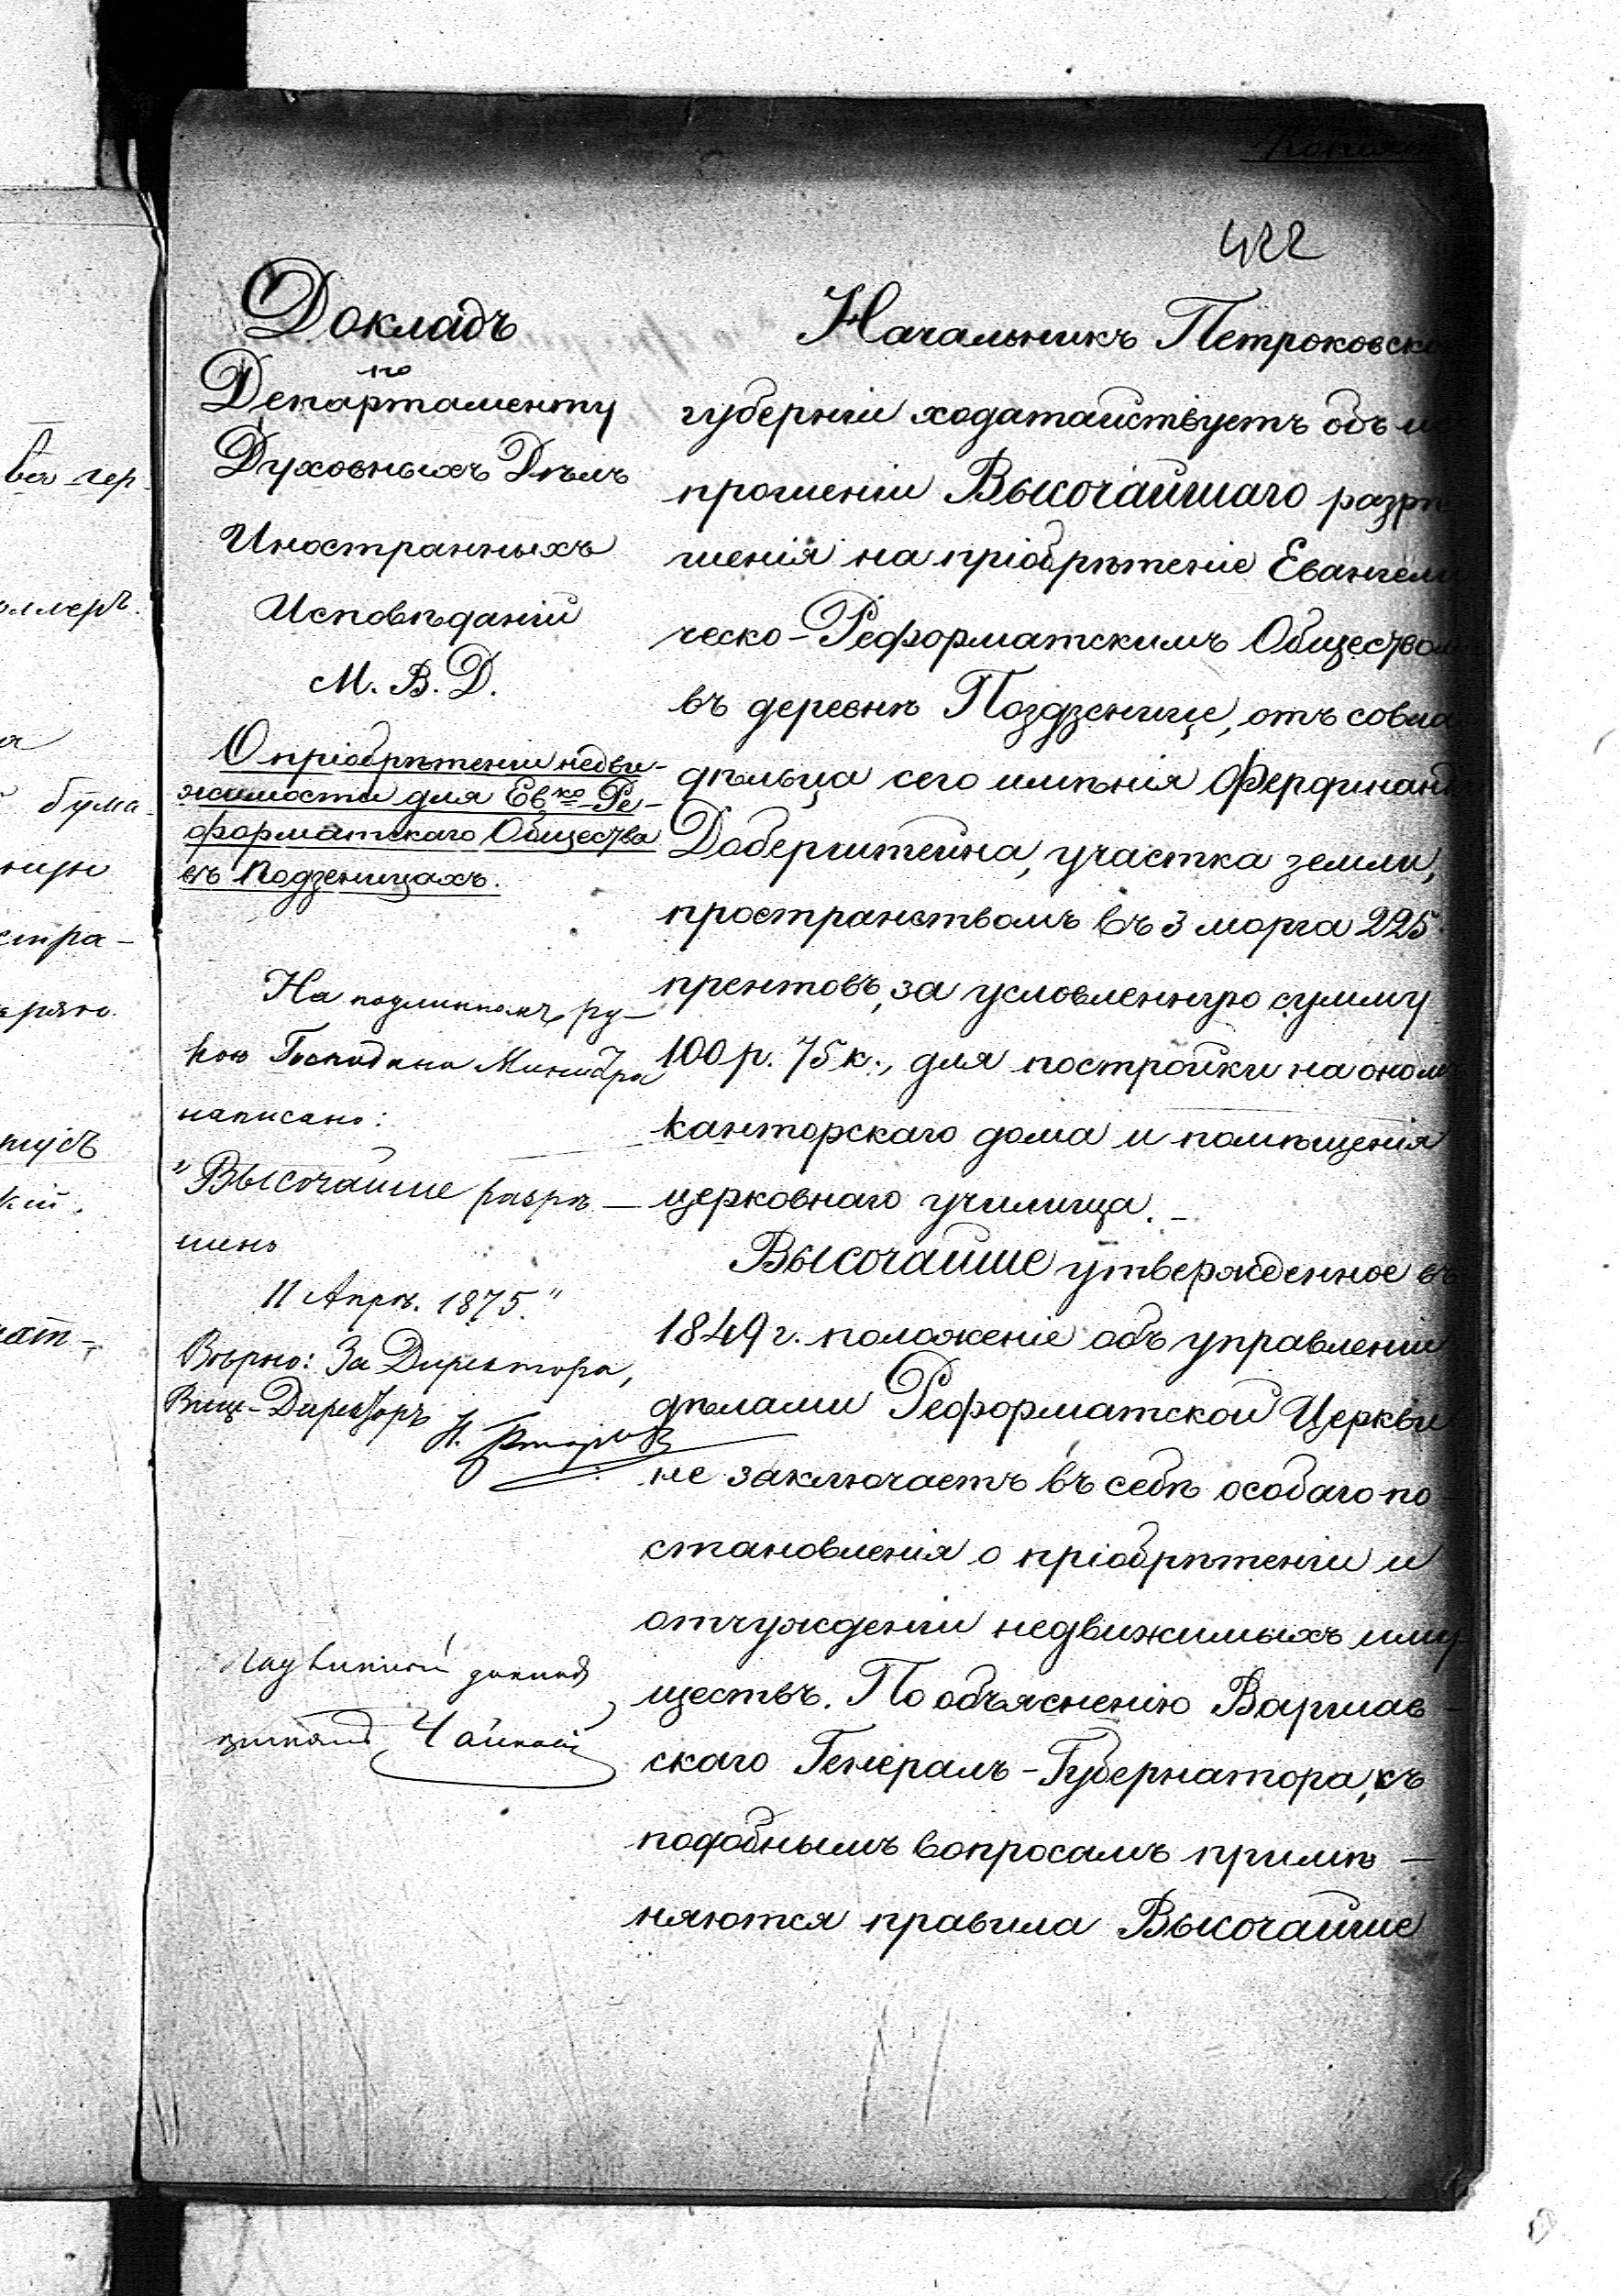 Копія
422
Докладъ
по
Департаменту
Духовныхъ Дѣлъ
Иностранныхъ
Исповѣданій
М. В. Д.
О пріобрѣтеніи недви-
жимости для Евко-Ре-
форматскаго Общества
въ Подзеницахъ.
На подлинномъ ру-
кою Господина Министра
написано:
"Высочайше разрѣ-
шено
11 Апрѣ. 1875."
Вѣрно: За Директора,
Вице-Директоръ
Начальникъ Петроковско
губерніи ходатайствуетъ объ ис
прошеніи Высочайшаго разрѣ
шенія на пріобрѣтеніе Евангели
ческо-Реформатскимъ Обществом
въ деревнѣ Поздзенице, отъ совла
дѣльца сего имѣнія Фердинанд
Доберштейна, участка земли,
пространствомъ въ 3 морга 225
прентовъ, за условленную сумму
100 р. 75 к., для постройки на оном
канторскаго дома и помѣщенія
церковнаго училища.
Высочайше утвержденное въ
1849 г. положеніе объ управленіи
дѣлами Реформатской Церкви
не заключаетъ въ себѣ особаго по-
становленія о пріобрѣтеніи и
отчужденіи недвижимыхъ иму-
ществъ. По объясненію Варшав-
скаго Генералъ-Губернатора, къ
подобнымъ вопросамъ примѣ-
няются правила Высочайше
вег
бума
стра-